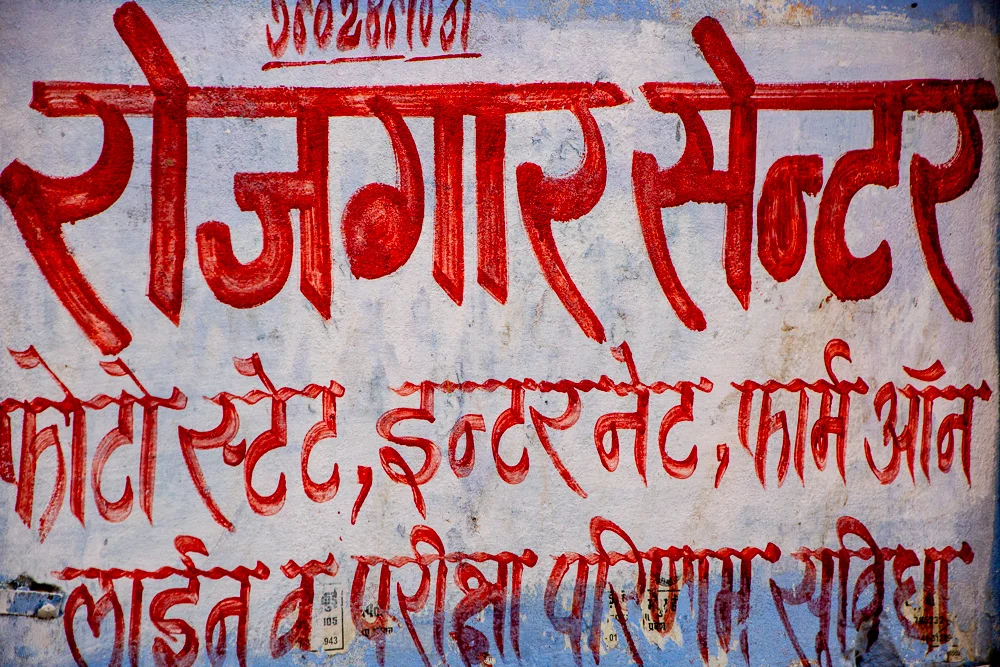 रोजगार सेन्टर
फोटो स्टेट, इन्टरनेट, फार्म ऑन
लाईन व परीक्षा परिणाम सुविधा